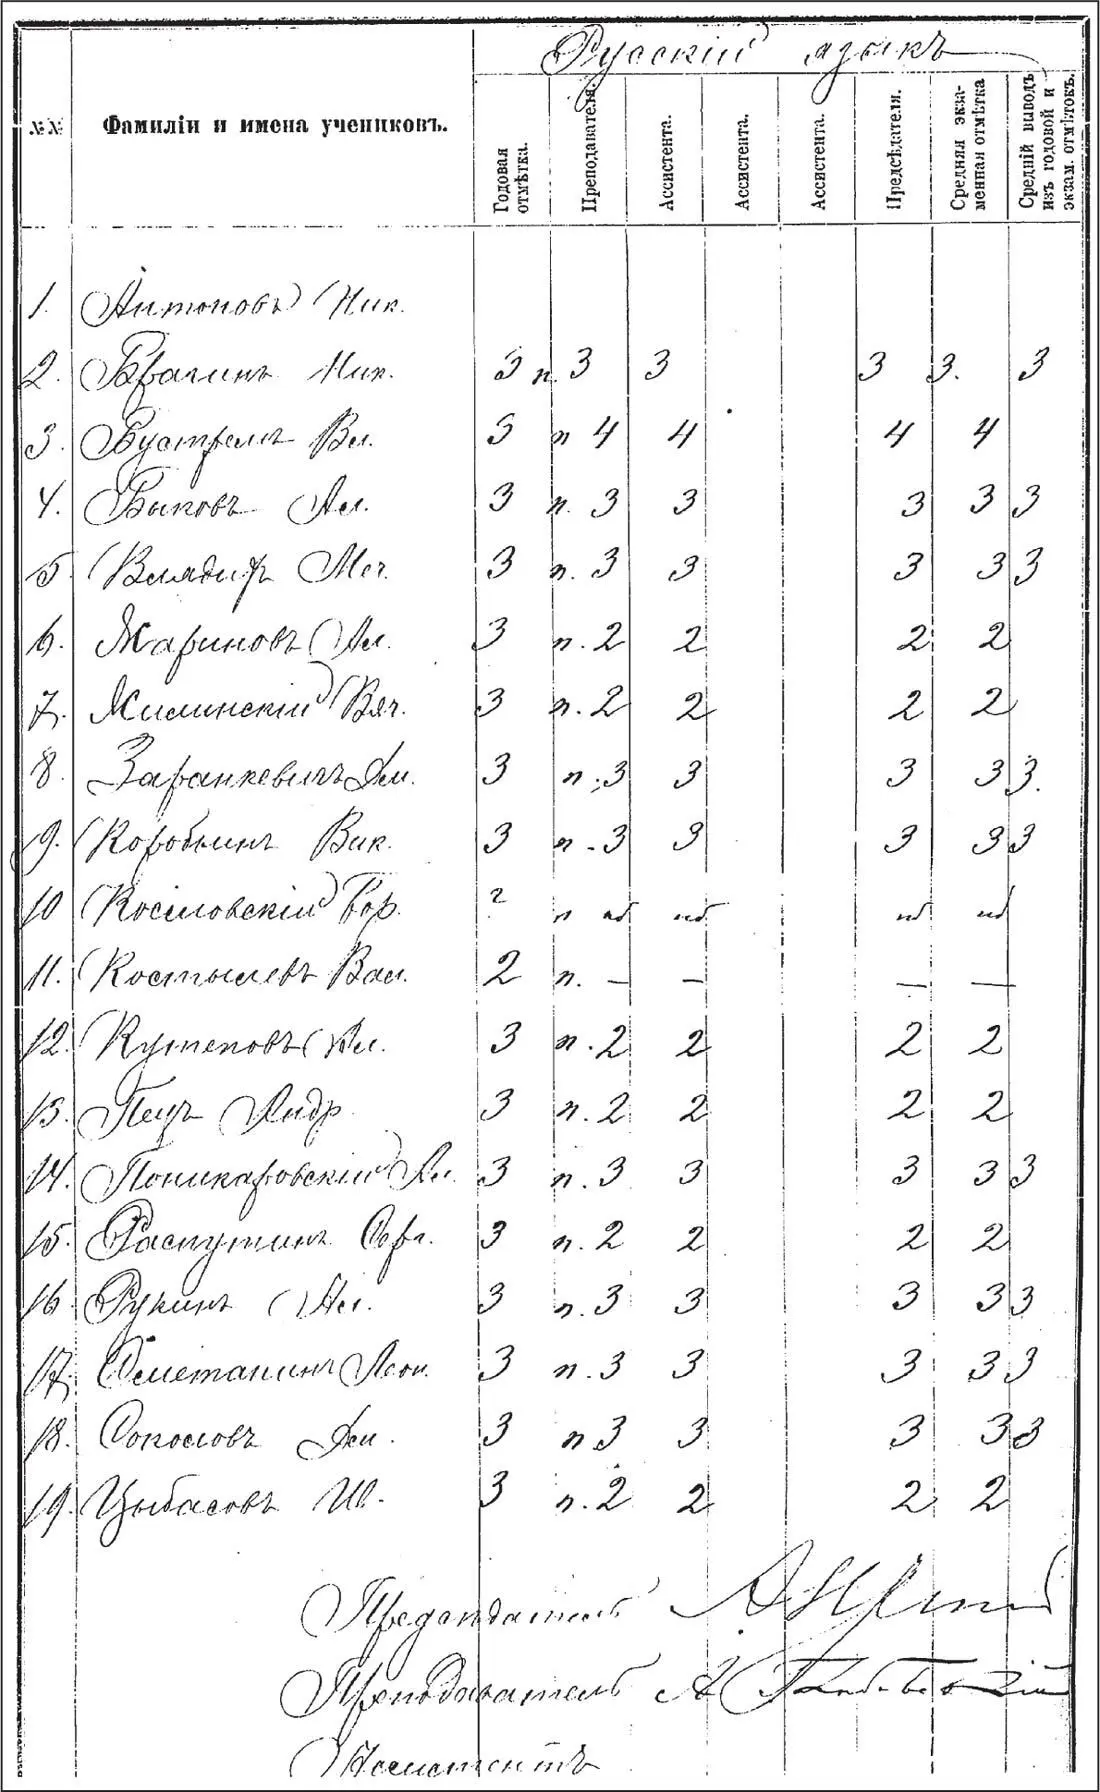 Русскій языкъ
№№ Фамиліи и имена учениковъ. Годовая отмѣтка. Преподавателя. Ассистента. Ассистента. Ассистента. Предсѣдателя. Средняя экза-менная отмѣтка Средній выводъ изъ годовой и экзам. отмѣтокъ.
1. Антоновъ Ник.
2. Брагинъ Ник. 3 п. 3 3 3 3. 3
3. Бустремъ Вл. 3 п 4 4 4 4
4. Быковъ Ал. 3 п. 3 3 3 3 3
5 Меч. 3 п. 3 3 3 3 3
6. Жариновъ Ал. 3 п. 2 2 2 2
7. Жилинскій Вяч. 3 п. 2 2 2 2
8. Заранкевичъ Дм. 3 п. 3 3 3 3 3.
9. Коробкинъ Вик. 3 п - 3 3 3 3 3
10 Косіловскій Бор. 2 п нб нб нб нб
11. Костылевъ Вас. 2 п. — — — —
12. Кутеповъ Ал. 3 п. 2 2 2 2
13. Пецъ Андр 3 п. 2 2 2 2
14. Поникаровскій Ал. 3 п. 3 3 3 3 3
15. Распутинъ Серг. 3 п. 2 2 2 2
16. Рукинъ Ал. 3 п. 3 3 3 3 3
17. Сметанинъ Леон. 3 п. 3 3 3 3 3
18. Соколовъ Дм. 3 п 3 3 3 3 3
19. Цыбасовъ Ив. 3 п. 2 2 2 2
Предсѣдатель
Преподаватель А
Ассистентъ